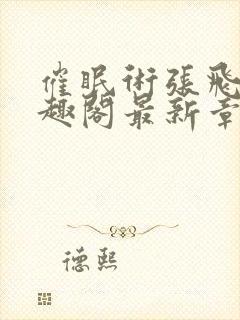 催眠術張飛
趣閣最新章
德熙